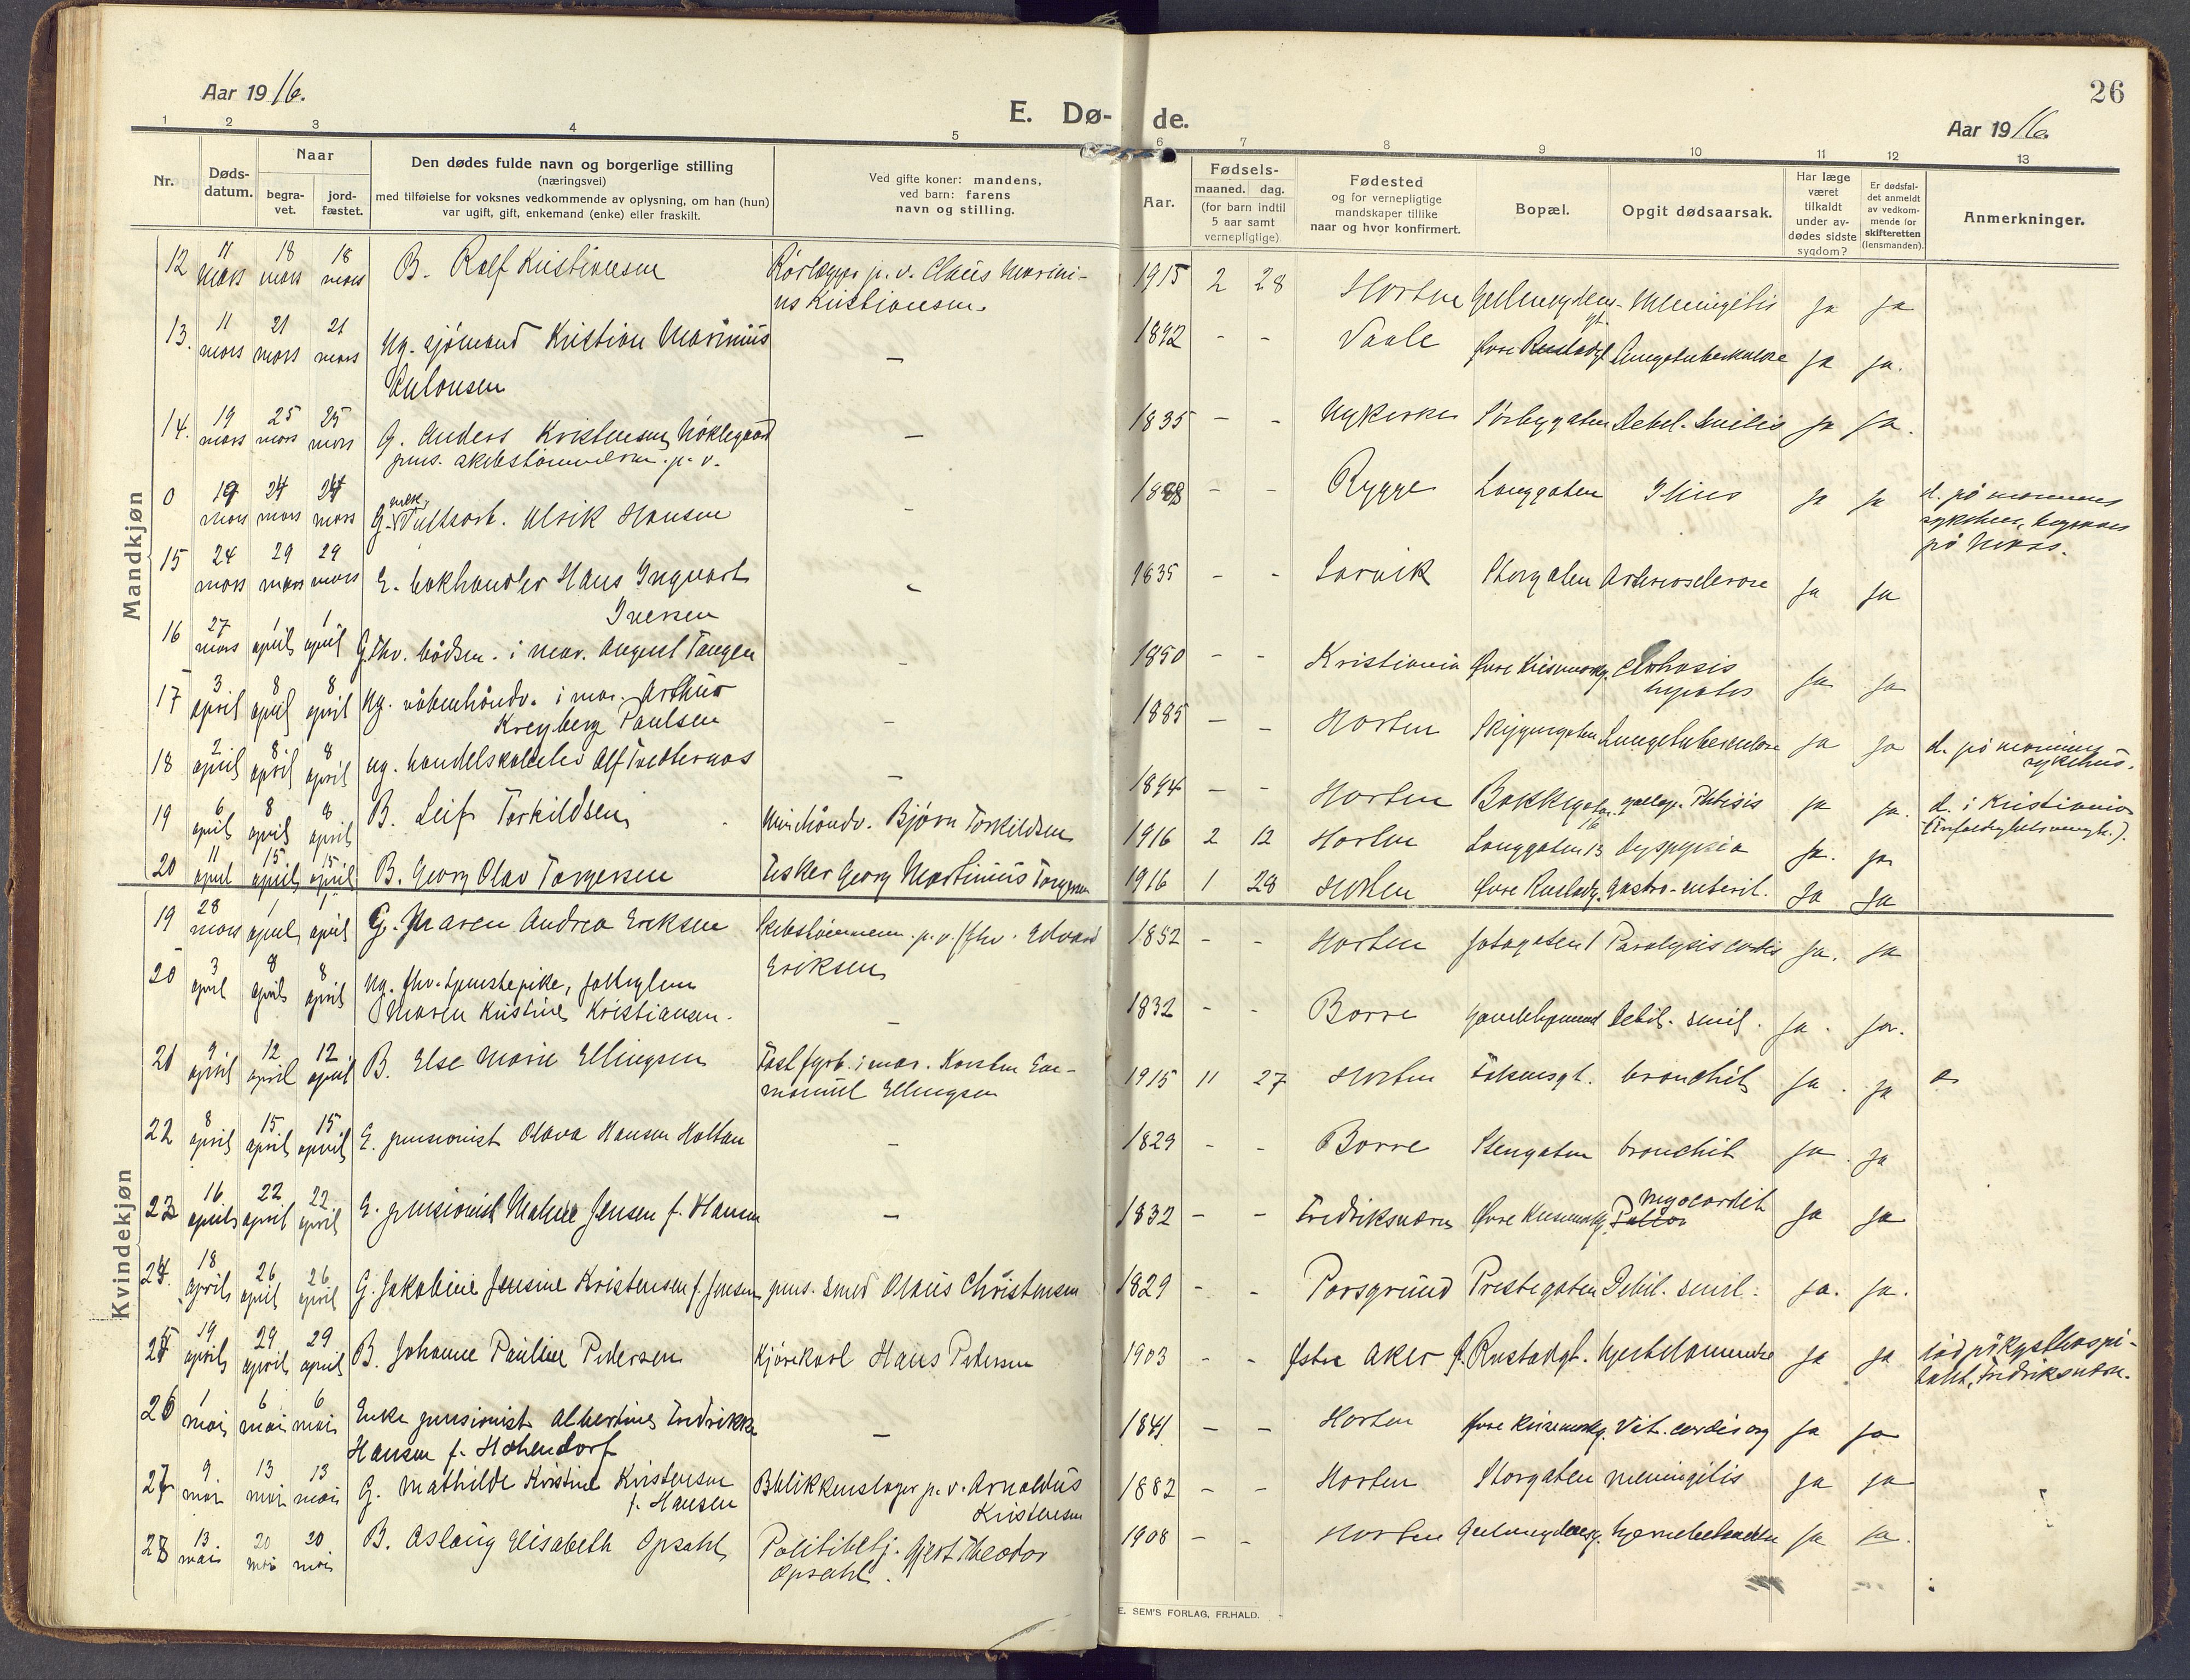 26
Aar 1916.
E. Dø- de.
Aar 1916.
1 2 3 4 5 6 7 8 9 10 11 12 13
Nr.
Døds-
datum.
Naar
begra-
vet.
jord-
fæstet.
Den dødes fulde navn og borgerlige stilling
(næringsvei)
med tilføielse for voksnes vedkommende av oplysning, om han (hun)
var ugift, gift, enkemand (enke) eller fraskilt.
Ved gifte koner: mandens,
ved barn: farens
navn og stilling.
Aar.
Fødsels-
maaned. dag.
(for barn indtil
5 aar samt
vernepligtige)
Fødested
og for vernepligtige
mandskaper tillike
naar og hvor konfirmert.
Bopæl.
Opgit dødsaarsak.
Har læge
været
tilkaldt
under av-
dødes sidste
sygdom?
Er dødsfal-
det anmeldt
av vedkom-
mende for
skifteretten
(lensmanden).
Anmerkninger.
Mandkjøn
12 11 mars 18 mars 18 mars B. Rolf Kristiansen Rørlægger p. v. Claus Marini-
us Kristiansen 1915 2 28 Horten meningitis ja ja
13. 11 mars 21 mars 21 mars Ug. sjömand Kristian Marinius
Antonsen — 1892 - - Vaale Øvre Rustadgt. Lungetuberkulose ja ja.
14. 19 mars 25 mars 25 mars G. Anders Kristensen Nöklegaard
pens. skibstømmerm. p. v. — 1835 - - Nykirke Sørbygaten Debil. senilis ja ja.
0 19 mars 24 mars 24 mars G. Ulrik Hansen - 1888 - - Rygge Langgaten Ileus ja ja d. på marinens
sykehus, begraves
på
15 24 mars 29 mars 29 mars E. bokhandler Hans Ingvart
Iversen - 1835 - - Larvik Storgaten Arteriosclerose ja ja
16 27 mars 1 april 1 april G. fhv. bådsm. i mar. August Tangen - 1850 - - Kristiania Øvre Keisemarkg. Cirrhosis
hepatis ja ja
17 3 april 8 april 8 april Ug. våbenhåndv. i mar. Arthur
Kreyberg Paulsen - 1885 - - Horten Skippergaten Lungetuberkulose ja ja d. på marinens
sykehus.
18 2 april 8 april 8 april ug. handelsskoleelev Alf Tvedternas — 1894 - - Horten Bakkegaten Phtisis ja ja. d. i Kristiania
19 6 april 8 april 8 april B. Leif Torkildsen Minehåndv. Bjørn Torkildsen 1916 2 12 Horten Langgaten 13 dyspepsia ja. ja
20 11 april 15 april 15 april B. Georg Olav Torgersen Fisker Georg Martinius Torgersen 1916 1 28 Horten Øvre Rustadg. Gastro-enterit. Ja Ja
Kvindekjøn
19 28 mars 1 april 1 april G. Maren Andrea Eriksen Skibstömmerm. p. v. fhv. Edvard
Eriksen 1852 - - Horten gaten 1 Paralysis cordis ja. ja
20 3 april 8 april 8 april Ug. fhv. tjenestepike, fattiglem
Maren Kristine Kristiansen. — 1832 - - Borre Debil. senil. ja. ja.
21 9 april 12 april 12 april B. Else Marie Ellingsen Fast fyrb. i mar. Karsten Em-
manuel Ellingsen 1915 11 27 Horten Falkensgt. bronchit ja. ja
22 8 april 15 april 15 april E. pensionist Olava Hansen Holtan — 1829 - - Borre Stengaten bronchit ja. ja
23 16 april 22 april 22 april E. pensionist Mathea Jensen f. Hansen — 1832 - - Fredriksværn Øvre Keisemarkg. myocardit ja ja
24. 18 april 26 april 26 april G. Jakobine Jensine Kristensen f. Jensen pens. smed Olaus Christensen 1829 - - Porsgrund Prestegaten Debil. senil. ja. ja.
25 19 april 29 april 29 april B. Johanne Pauline Pedersen Kjørekarl Hans Pedersen 1903 - - Østre Aker Rustadgt. hjertelammelse ja ja død på kysthospi-
talet, Fredriksværn.
26 1 mai 6 mai 6 mai Enke pensionist Albertine Fredrikke
Hansen f. Hohendorf — 1841 - - Horten Øvre Keisemarkg. Vit. cordis org ja ja
27 9. mai 13 mai 13 mai G. Mathilde Kristine Kristensen
f. Hansen Blikkenslager p. v. Arnoldus
Kristensen 1882 - - Horten Storgaten meningitis ja ja
28 13 mai 20 mai 20 mai B. Aslaug Elisabeth Opsahl Politibetj. Gjert Theodor
Opsahl. 1908 - - Horten hjernebetændelse ja ja.
E. SEM'S FORLAG, FR.HALD.